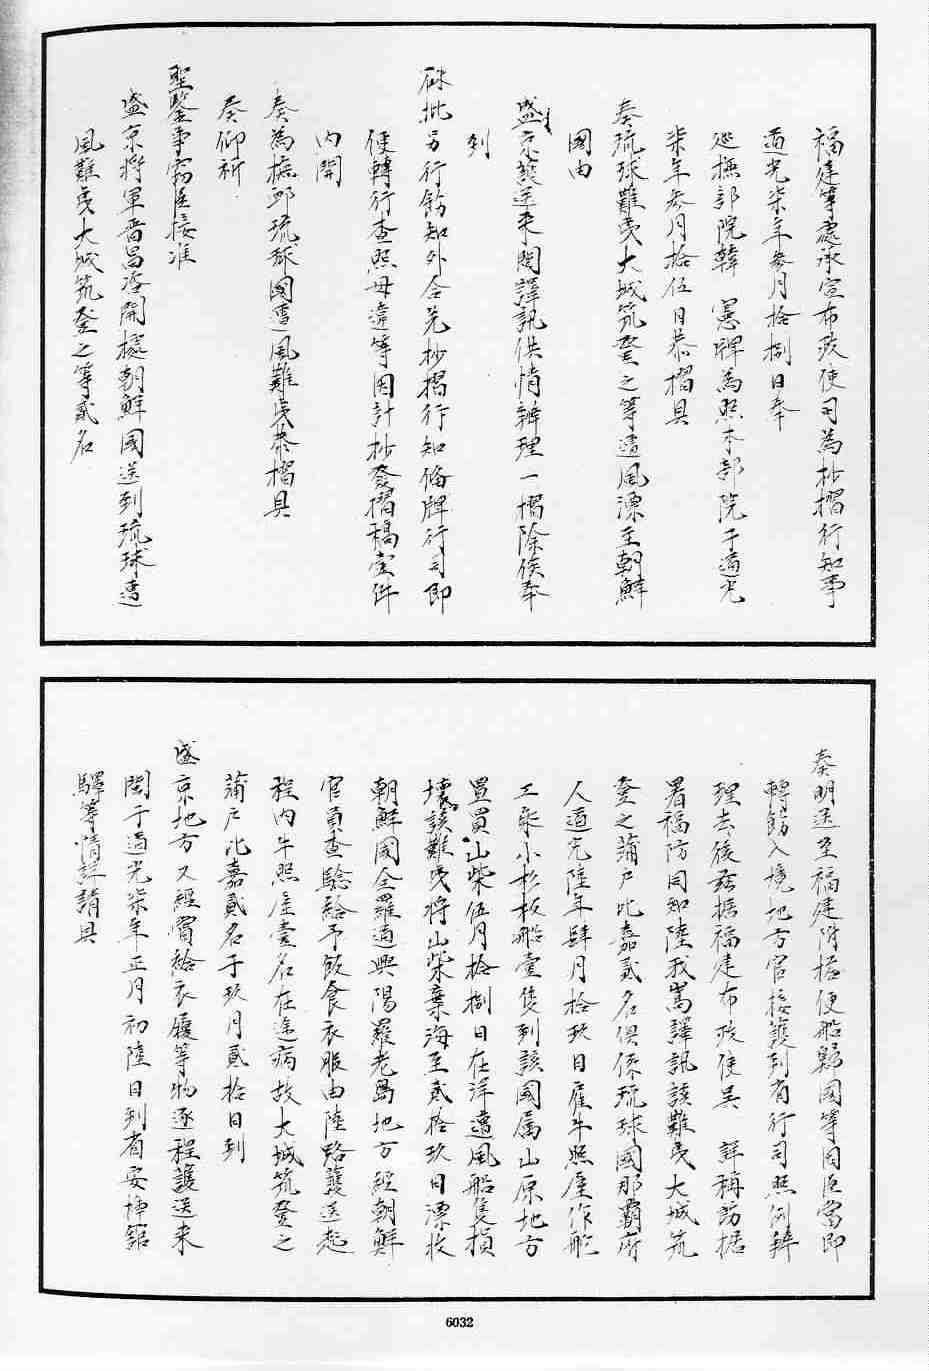 福建等處承宣布政使司為抄摺行知事
道光柒年叁月拾捌日奉
巡撫部院韓　憲牌為照本部院于道光
柒年叁月拾伍日恭摺具
奏琉球難夷大城筑登之等遭風漂至朝鮮
國由
盛京護送來閩譯訊供情辦理一摺除俟奉
到
硃批另行飭知外合先抄摺行知備牌行司即
便轉行查照毋違等因計抄發摺稿壹件
內開
奏為撫卹琉球國遭風難夷恭摺具
奏仰祈
聖鑒事竊臣接准
盛京將軍晋昌咨開據朝鮮國送到琉球遭
風難夷大城筑登之等貳名
奏明送至福建附搭便船歸國等因臣當即
轉飭入境地方官接護到省行司照例辦
理去後茲據福建布政使吳　詳稱飭據
署福防同知陸我嵩譯訊該難夷大城筑
登之蒲戶比嘉貳名俱係琉球國那霸府
人道光陸年肆月拾玖日雇牛照屋作舵
工乘小杉板船壹隻到該國屬山原地方
置買山柴伍月拾捌日在洋遭風船隻損
壞該難夷將山柴棄海至貳拾玖日漂收
朝鮮國全羅道興陽羅老島地方經朝鮮
官員查驗給予飯食衣服由陸路護送起
程內牛照屋壹名在途病故大城筑登之
蒲戶比嘉貳名于玖月貳拾日到
盛京地方又經賞給衣履等物逐程護送來
閩于道光柒年正月初陸日到省安揷館
驛等情詳請具
6032